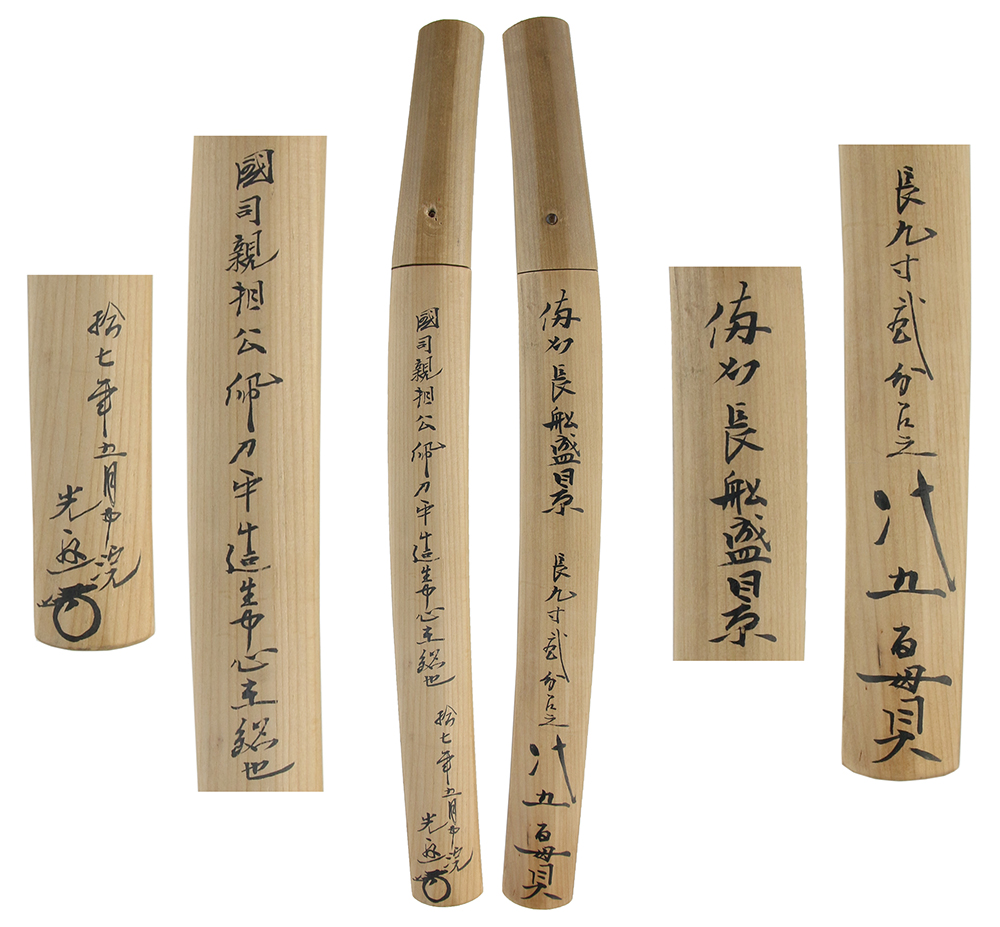 長九寸貳分有之 代五百貫
備州長船盛景
備州長船盛景 長九寸貳分有之 代五百貫
國司親相公佩刀平造生中心在銘也
拾七年五月中浣
光遜
國司親相公佩刀平造生中心在銘也
拾七年五月中浣
光遜